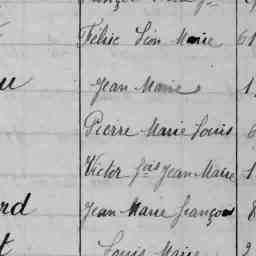 Félix Léon Marie 61
Jean Marie 1
Pierre Marie Louis 6
Victor fois Jean Marie 1
rd Jean Marie François 8
t Louis Marie 2